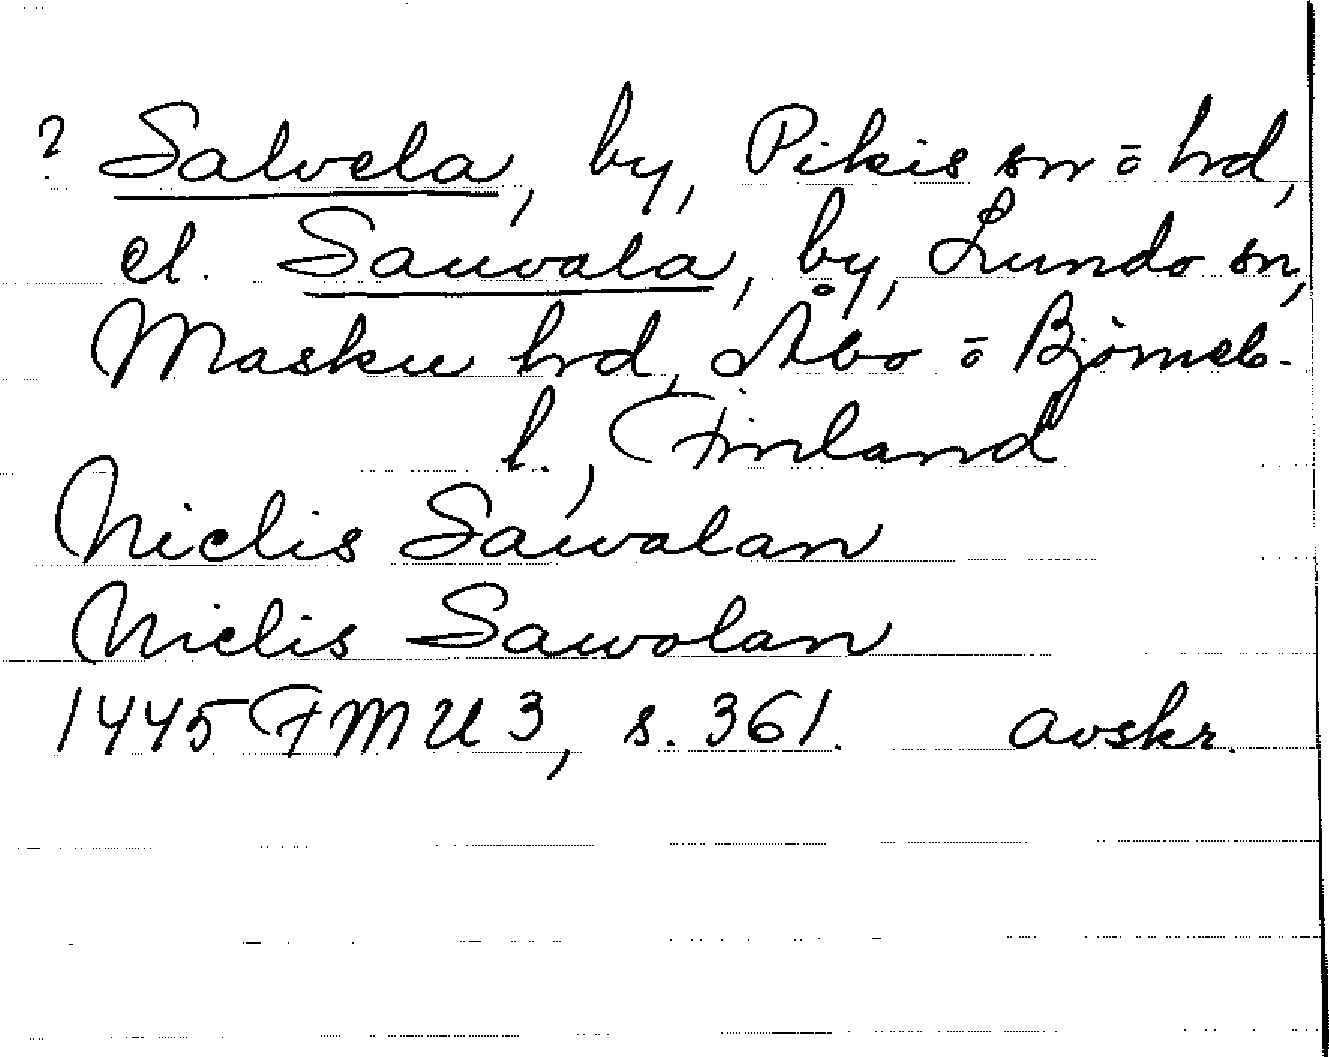 ? Salvela, by, Pikis sn o hd,
el. Sauvala, by, Lundo sn,
Masku hd, Åbo o Björneb-
l., Finland
Niclis Sawalan
Niclis Sawolan
1445 FMU 3, s. 361. avskr.